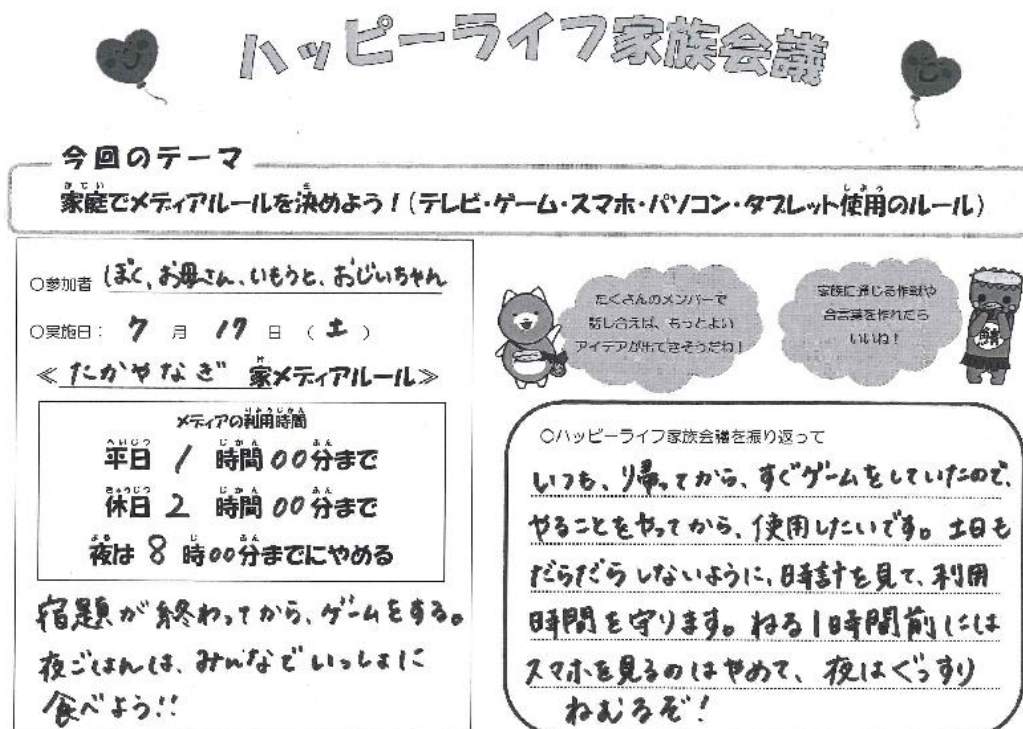 ハッピーライフ家族会議
今回のテーマ
家庭でメディアルールを決めよう！（テレビ・ゲーム・スマホ・パソコン・タブレット使用のルール）
○参加者 ぼく、お母さん、いもうと、おじいちゃん
○実施日： 7 月 17 日 （ 土 ）
≪ たかやなぎ 家メディアルール≫
メディアの利用時間
平日 1 時間 00分まで
休日 2 時間 00分まで
夜は 8 時00分までにやめる
宿題が終わってから、ゲームをする。
夜ごはんは、みんなでいっしょに
食べよう!!
たくさんのメンバーで
話し合えば、もっとよい
アイデアが出てきそうだね！
家族に通じる作戦や
合言葉を作れたら
いいね！
○ハッピーライフ家族会議を振り返って
いつも、帰ってから、すぐゲームをしていたので、
やることをやってから、使用したいです。土日も
だらだらしないように、時計を見て、利用
時間を守ります。ねる1時間前には
スマホを見るのはやめて、夜はぐっすり
ねむるぞ！